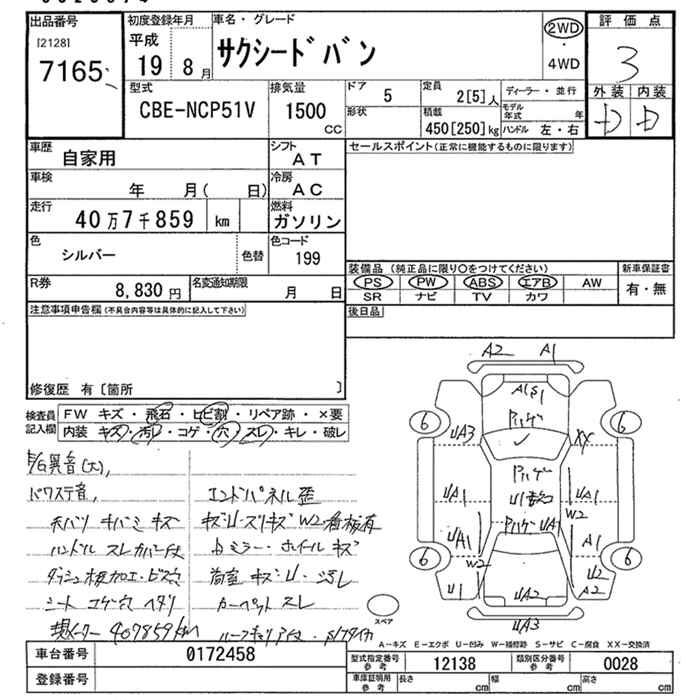 出品番号
[2128]
7165
初度登録年月
平成
19 8月
車名・グレード
サクシードバン
2WD
・
4WD
評価点
3
外装 内装
中 中
型式
CBE-NCP51V
排気量
1500
CC
ドア
5
形状
定員
2[5]人
積載
450[250]kg
ディーラー・並行
モデル年式 年
ハンドル 左・右
車歴
自家用
シフト
AT
車検
年 月( 日)
冷房
AC
走行
40万7千859 km
燃料
ガソリン
色
シルバー
色替
色コード
199
R券
8,830円
名変通知期限
月 日
セールスポイント(正常に機能するものに限ります)
装備品 (純正品に限り○をつけてください)
PS PW ABS エアB AW
SR ナビ TV カワ
新車保証書
有・無
後日品
注意事項申告欄(不具合内容等は具体的に記入して下さい)
修復歴 有〔箇所 〕
検査員記入欄
FW キズ・飛石・ヒビ割・リペア跡・×要
内装 キズ・汚レ・コゲ・穴・スレ・キレ・破レ
E/G異音(大),
パワステ音,
天バリ キバミ キズ
ハンドル スレ カバー欠
ダッシュ板加工・ビス穴
シート コゲ穴 ヘタリ
現メーター 407859km
エンドパネル歪
キズ・U・ズリキズ W2 看板有
ミラー・ホイールキズ
荷室 キズ・U・汚レ
カーペット スレ
A2 A1
A1 S1
ハゲ
6 6
UA3 XX
ハゲ
UA1 U1 UA1
W2
ハゲ UA1
UA1 A1
6 6
W2
U1 UA2 U2
A2
UA3
スペア
A-キズ E-エクボ U-凹み W-補修跡 S-サビ C-腐食 XX-交換済
車台番号
0172458
登録番号
型式指定番号
参考
12138
類別区分番号
参考
0028
車庫証明用
参考
長さ cm
幅 cm
高さ cm